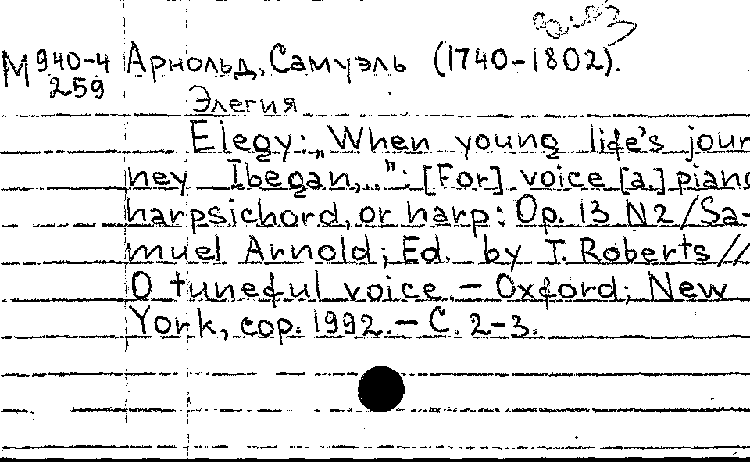 М 940-4 Арнольд, Самуэль (1740-1802).
259
Элегия
Elegy: „When young life's jour
ney I began,..": [For] voice [a.] piano
harpsichord, or harp: Op. 13 N2 / Sa-
muel Arnold; Ed. by T. Roberts //
O tuneful voice. - Oxford; New
York, cop. 1992. - С. 2-3.